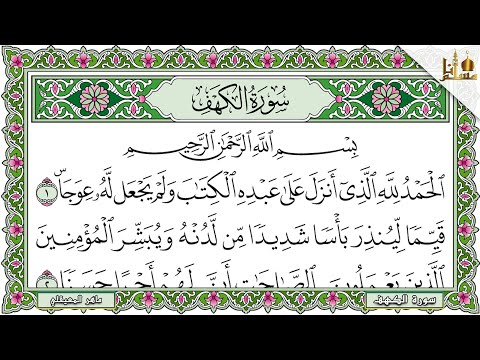 سُورَةُ الْكَهْفِ
بِسْمِ اللَّهِ الرَّحْمَٰنِ الرَّحِيمِ
الْحَمْدُ لِلَّهِ الَّذِي أَنزَلَ عَلَىٰ عَبْدِهِ الْكِتَابَ وَلَمْ يَجْعَل لَّهُ عِوَجَاۜ ١
قَيِّمًا لِّيُنذِرَ بَأْسًا شَدِيدًا مِّن لَّدُنْهُ وَيُبَشِّرَ الْمُؤْمِنِينَ
الَّذِينَ يَعْمَلُونَ الصَّالِحَاتِ أَنَّ لَهُمْ أَجْرًا حَسَنًا ٢
سورة الكهف
ماهر المعيقلي